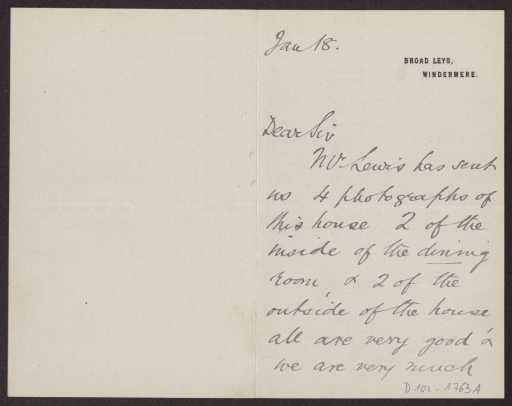 Jan 18.
BROAD LEYS,
WINDERMERE.
Dear Sir
Mr Lewis has sent
us 4 photographs of
this house 2 of the
inside of the dining
room, & 2 of the
outside of the house
all are very good &
we are very much
D.102-1763A